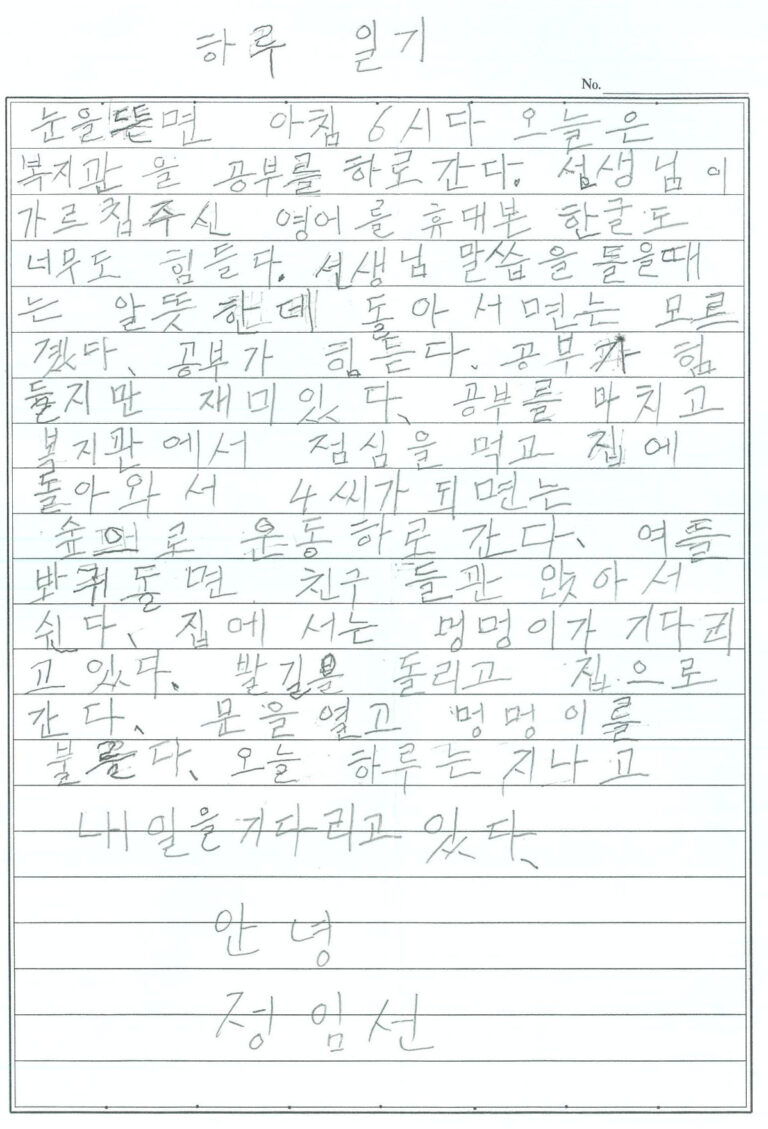 하루 일기
No.
눈을 뜯면 아침 6시다 오늘은
복지관 을 공부를 하로 간다. 섬생님이
가르침주신 영어를 휴대본 한글도
너무도 힘들다. 선생님 말씁을 들을때
는 알뜻 한데 돌아서면는 모르
겠다、공부가 힘듣다. 공부가 힘
들지만 재미있다、공부를 마치고
복지관에서 점심을 먹고 집에
돌아와서 4씨가 되면는
숲의로 운동하로 간다、여들
봐퀴돌면 친구 들관 앉아서
쉰다、집에서는 멍멍이가 기다리
고있다、발길을 돌리고 집으로
간다、문을열고 멍멍이를
불른다、오늘 하루는 지나고
내일을기다리고 있다、
안녕
정임선